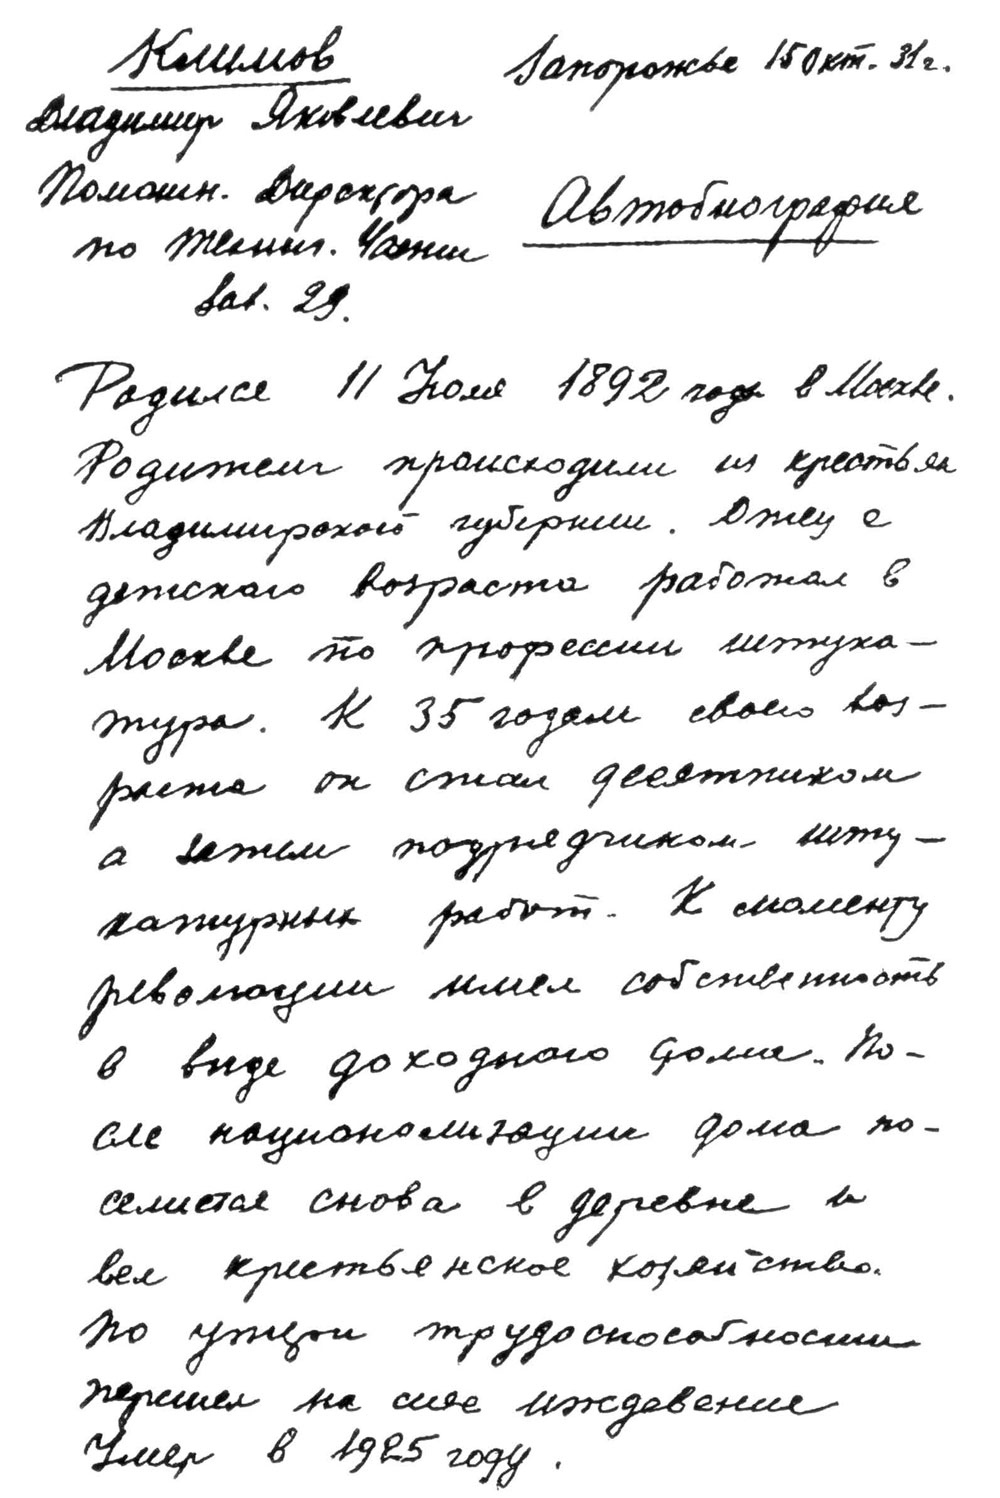 Климов
Запорожье 15 Окт. 31 г.
Владимир Яковлевич
Помощн. Директора
по Технич. Части
Зав. 29.
Автобиография
Родился 11 Июля 1892 года в Москве.
Родители происходили из крестьян
Владимирской губернии. Отец с
детского возраста работал в
Москве по профессии штука-
тура. К 35 годам своего воз-
раста он стал десятником
а затем подрядчиком шту-
катурных работ. К моменту
революции имел собственность
в виде доходного дома. По-
сле национализации дома по-
селился снова в деревне и
вел крестьянское хозяйство.
По утери трудоспособности
перешел на мое иждевение
Умер в 1925 году.